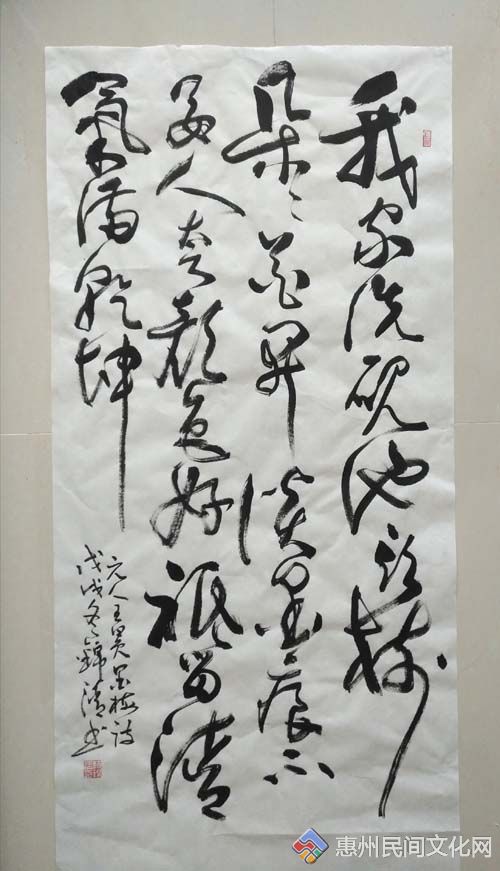 我家洗砚池头树
朵々花开淡墨痕不
要人夸颜色好祇留清
氣满乾坤
元人王冕墨梅诗
戊戌冬錦清书
惠州民间文化网